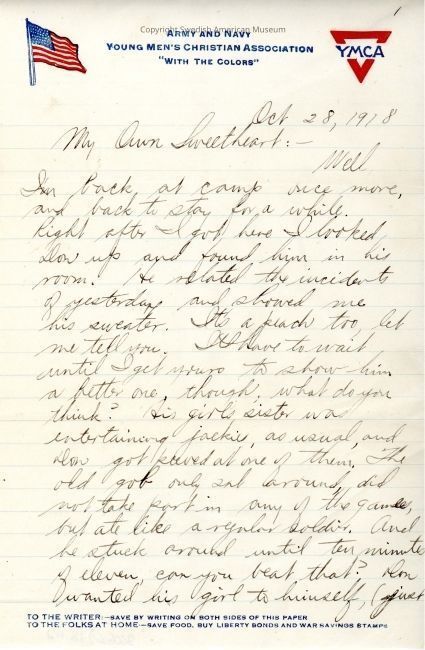 1
Copyright Swedish American Museum
ARMY AND NAVY
YOUNG MEN'S CHRISTIAN ASSOCIATION
"WITH THE COLORS"
YMCA
Oct 28, 1918
My Own Sweetheart:-
Well
I'm back at camp once more,
and back to stay for a while.
Right after I got here I looked
Don up and found him in his
room. He related the incidents
of yesterday and showed me
his sweater. It's a peach too, let
me tell you. I'll have to wait
until I get yours to show him
a better one, though, what do you
think? His girls sister was
entertaining jackie, as usual, and
Don got peeved at one of them. The
old gob only sat around, did
not take part in any of the games,
but ate like a regular soldier. And
he stuck around until ten minute
of eleven, can you beat that? Don
wanted his girl to himself, (just
TO THE WRITER:-SAVE BY WRITING ON BOTH SIDES OF THIS PAPER
TO THE FOLKS AT HOME-SAVE FOOD, BUY LIBERTY BONDS AND WAR SAVINGS STAMPS